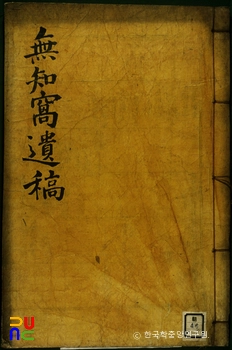 無知窩遺稿
© 한국학중앙연구원